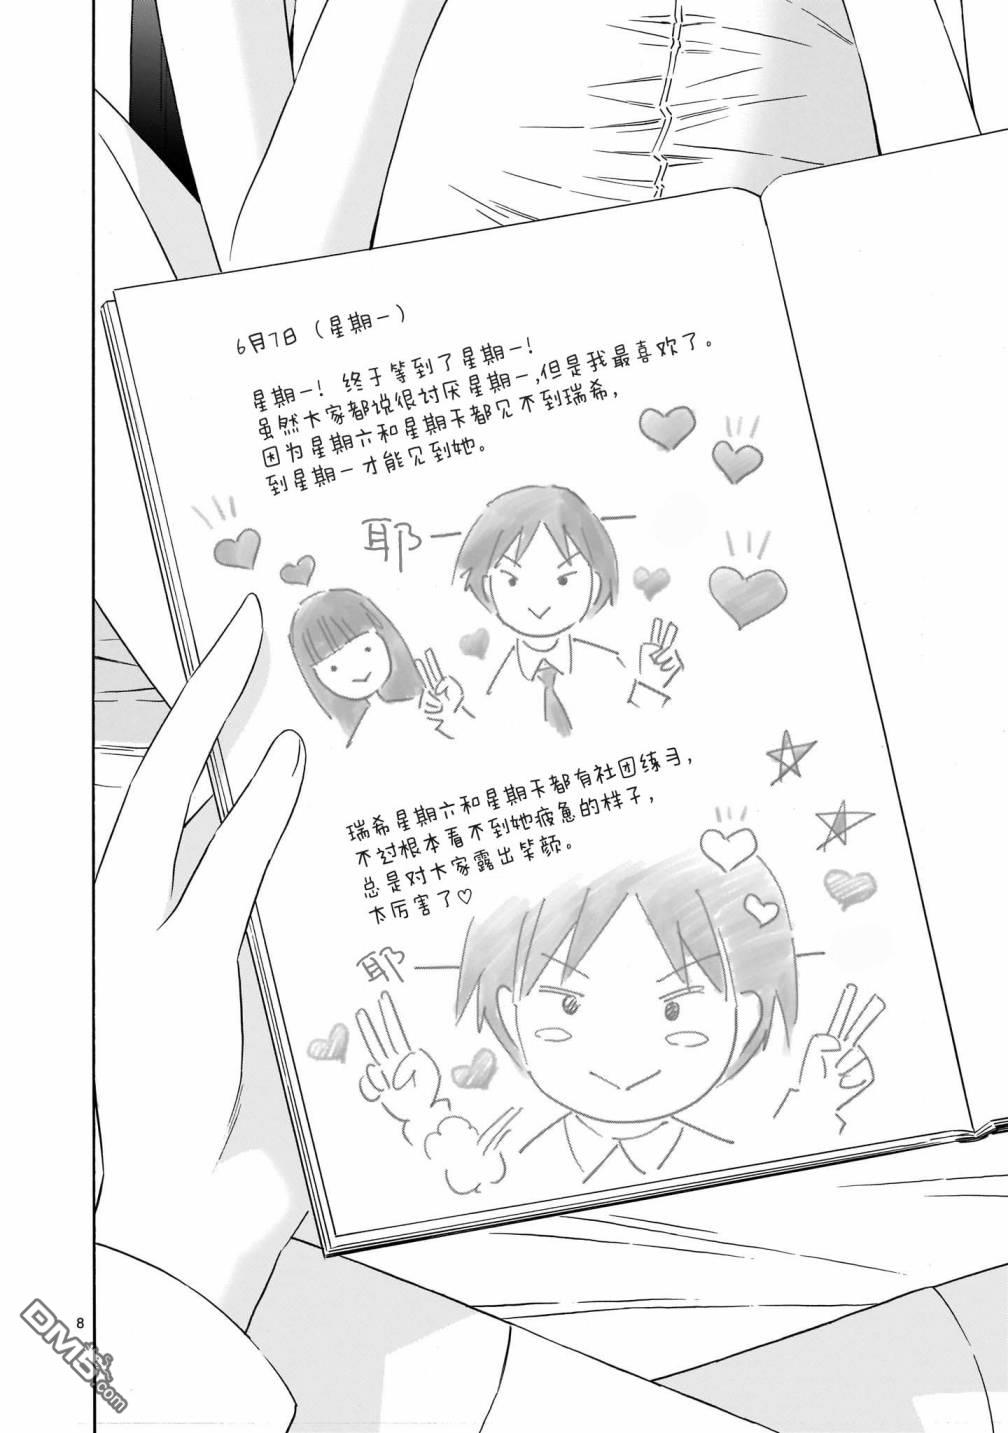 6月7日（星期一）
星期一！终于等到了星期一！
虽然大家都说很讨厌星期一,但是我最喜欢了。
因为星期六和星期天都见不到瑞希，
到星期一才能见到她。
耶一
瑞希星期六和星期天都有社团练习，
不过根本看不到她疲惫的样子，
总是对大家露出笑颜。
太厉害了♡
耶一
8
DM5.com